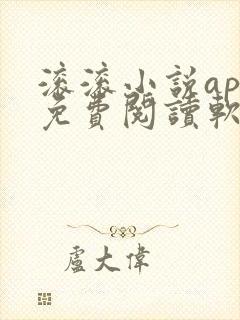 滚滚小説ap
免費閱讀軟
盧大偉